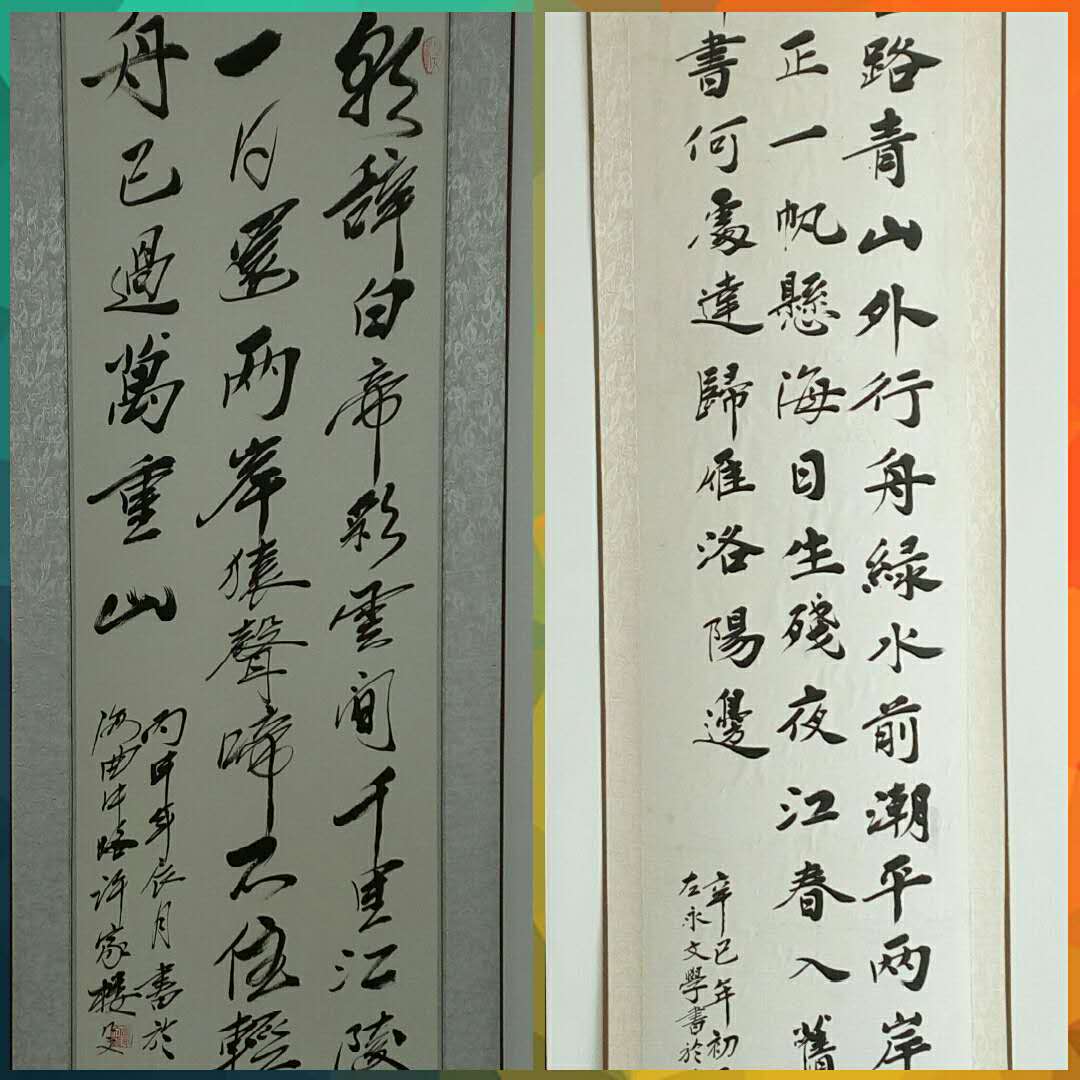 朝辭白帝彩雲間千里江陵
一日還两岸猿聲啼不住輕
舟已過萬重山
丙申年辰月書於
海曲中路許家楼
路青山外行舟緑水前潮平两岸
正一帆懸海日生殘夜江春入舊
書何處達歸雁洛陽邊
辛巳年初
左永文學書於